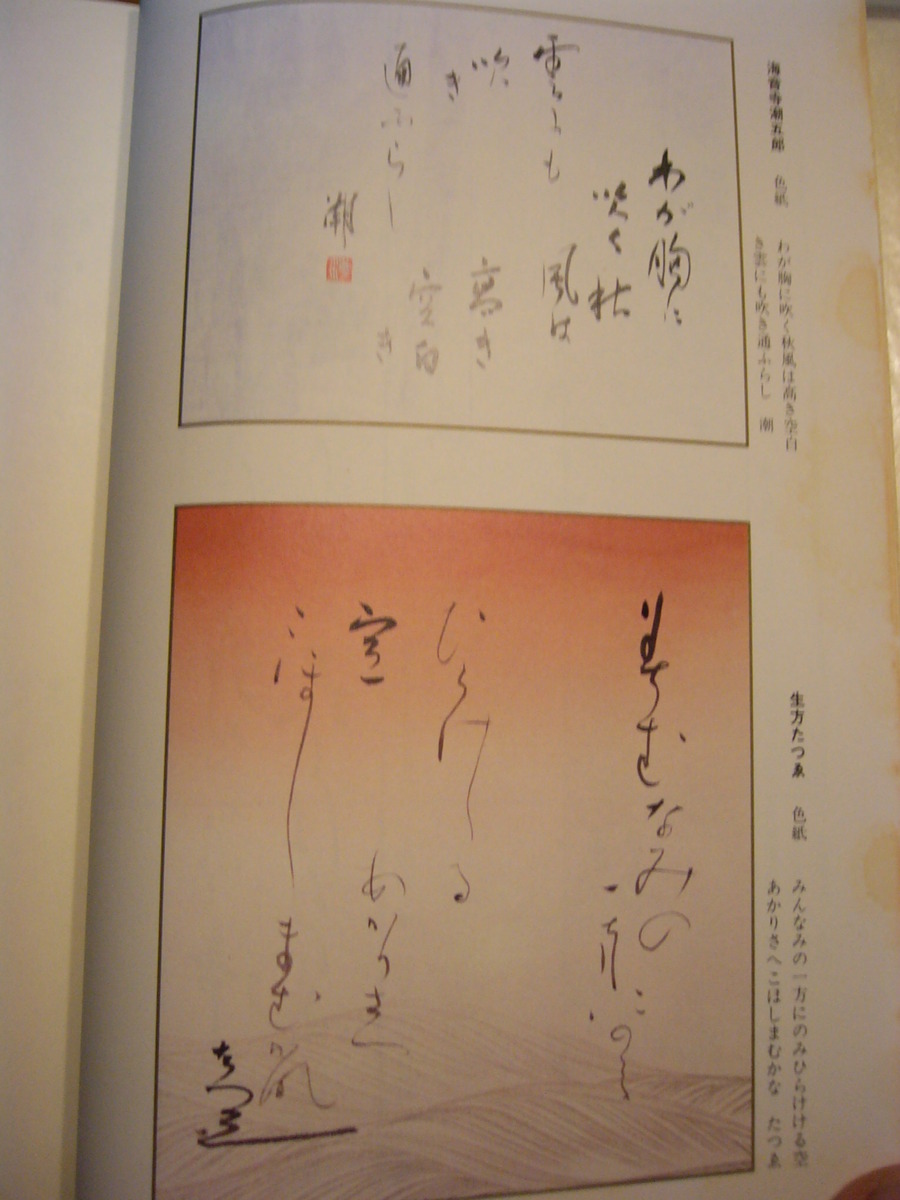 海音寺潮五郎　色紙　わが胸に吹く秋風は高き空白
き雲にも吹き通ふらし　潮
わが胸に
吹く秋
風は
高き
空白
き
雲にも
吹
き
通ふらし
潮
生方たつゑ　色紙　みんなみの一方にのみひらけける空
あかりさへこはしまむかな　たつゑ
ひらけける
空　あかりさへ